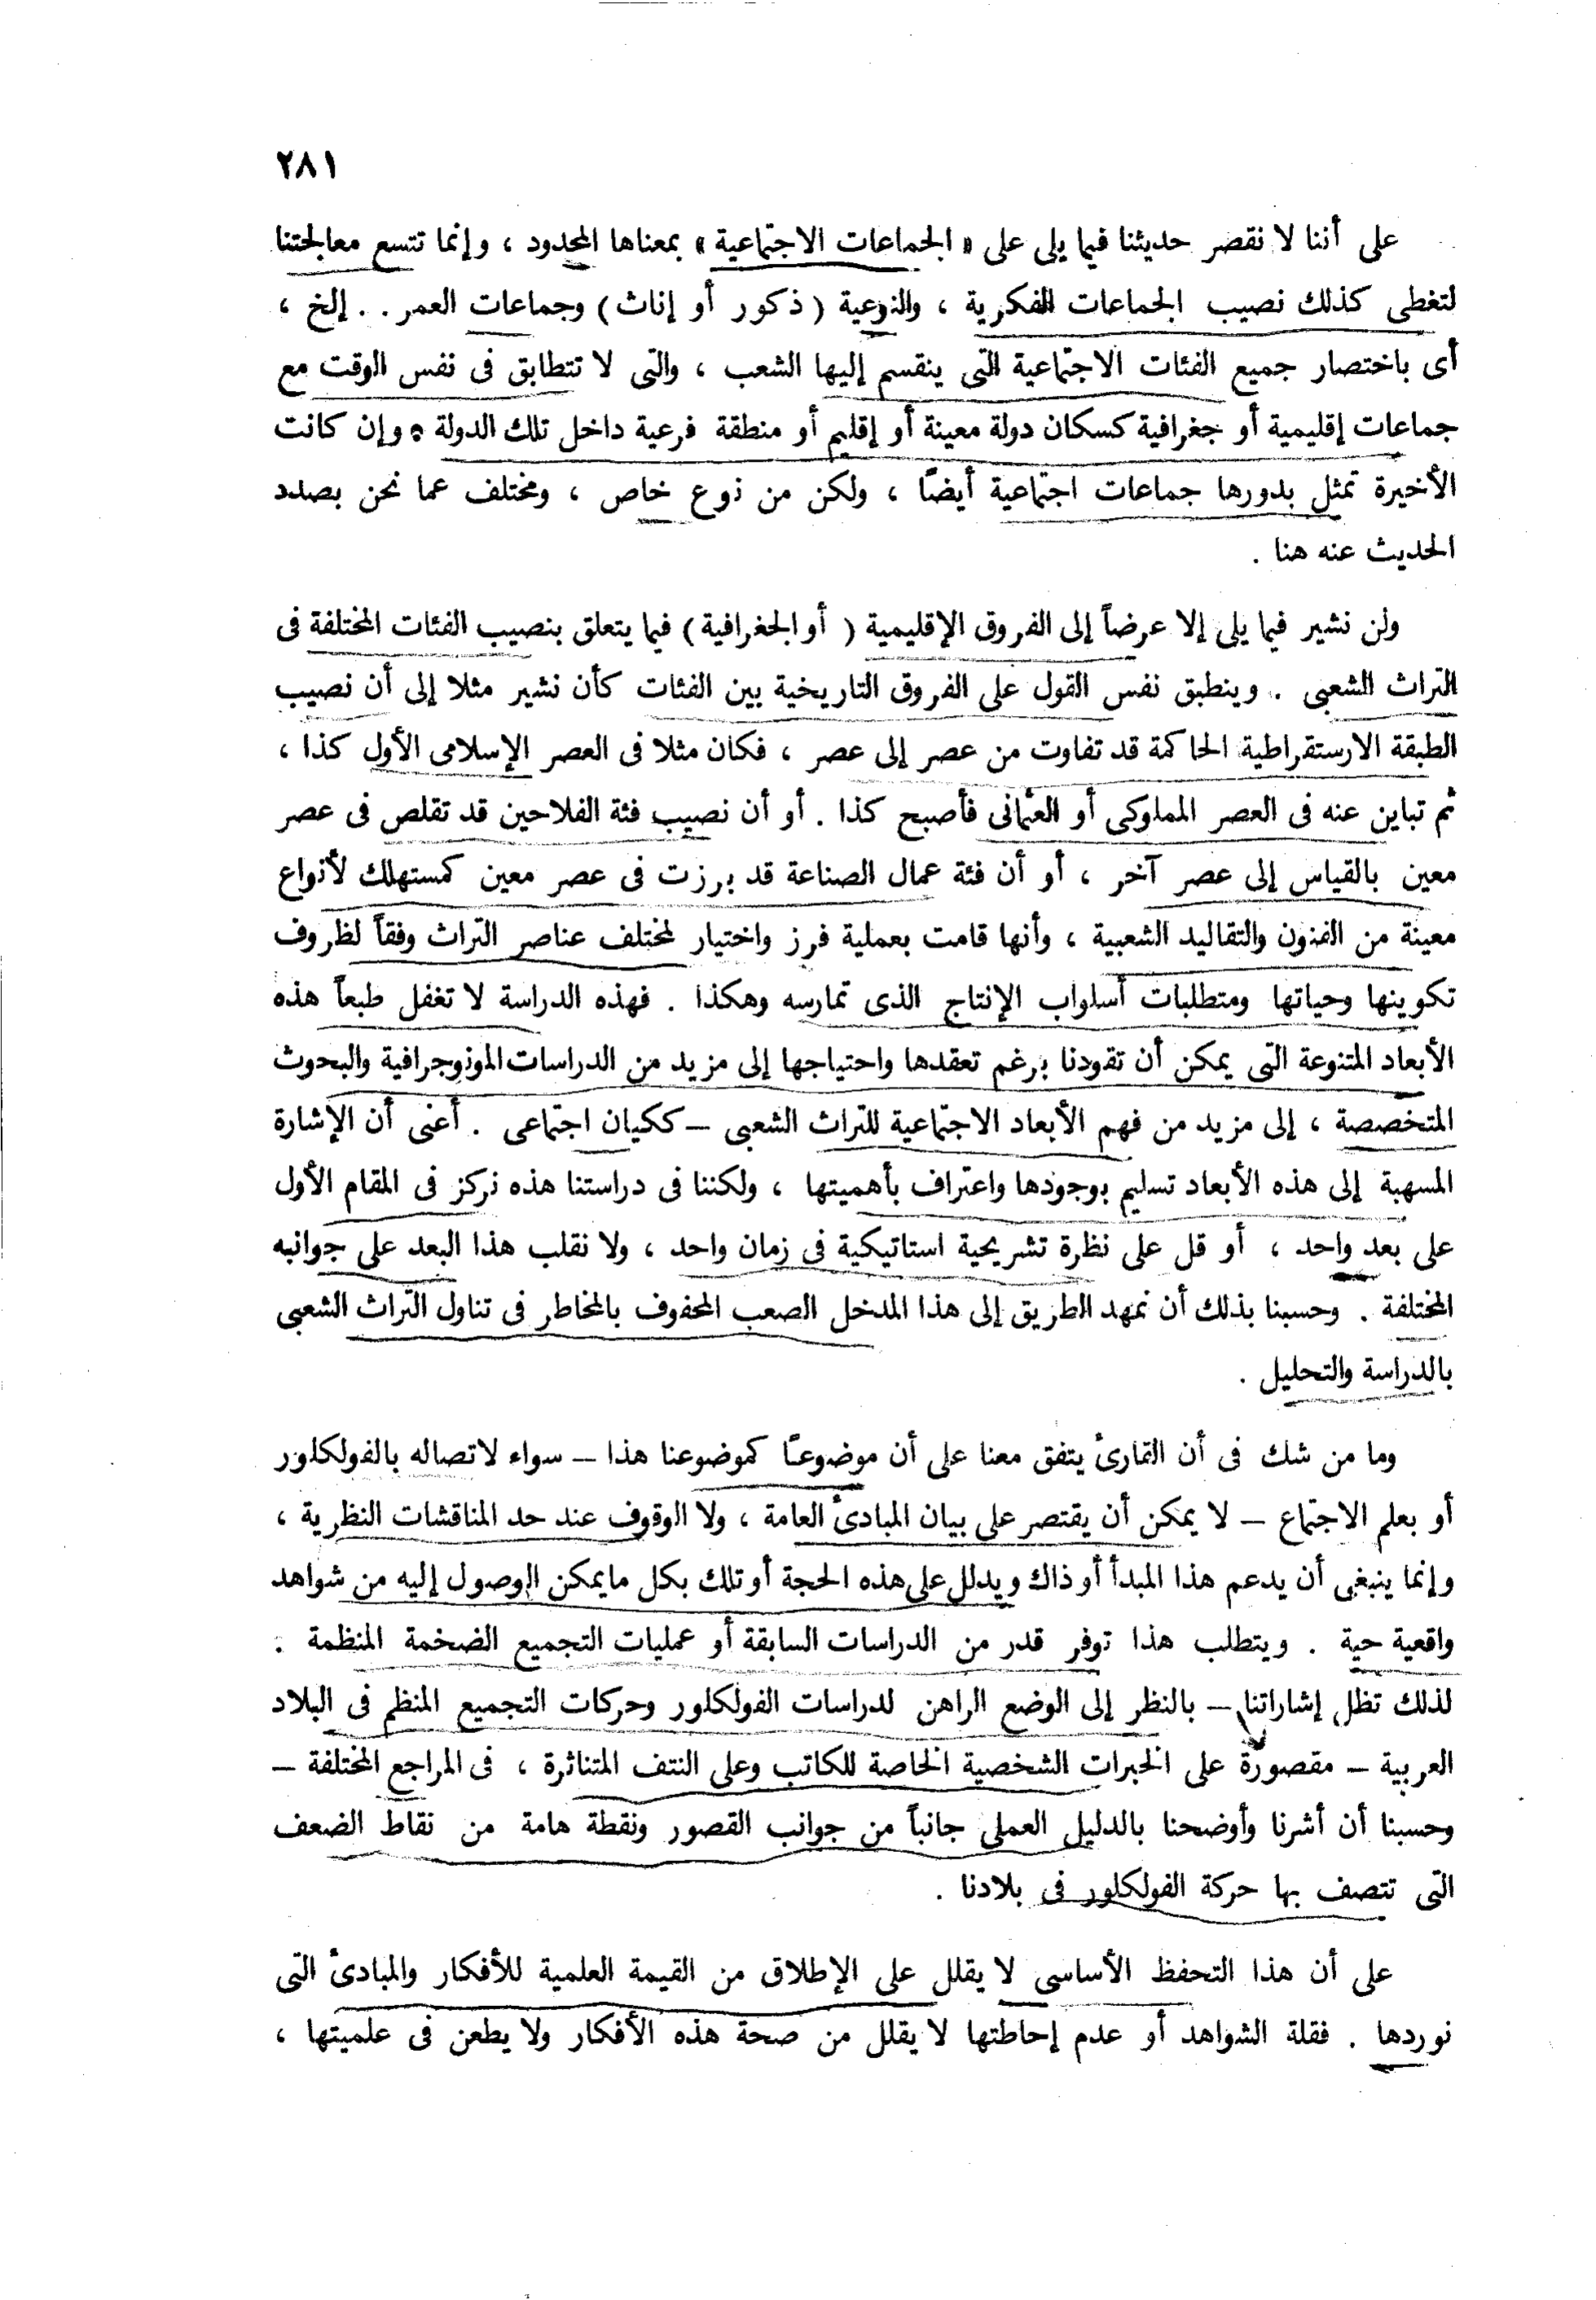 ٢٨١
على أننا لا نقصر حديثنا فيما يلى على « الجماعات الاجتماعية » بمعناها المحدود ، وإنما تتسع معالجتنا
لتغطى كذلك نصيب الجماعات الفكرية ، والنوعية ( ذكور أو إناث ) وجماعات العمر . . إلخ ،
أى باختصار جميع الفئات الاجتماعية التى ينقسم إليها الشعب ، والتى لا تتطابق فى نفس الوقت مع
جماعات إقليمية أو جغرافية كسكان دولة معينة أو إقليم أو منطقة فرعية داخل تلك الدولة . وإن كانت
الأخيرة تمثل بدورها جماعات اجتماعية أيضًا ، ولكن من نوع خاص ، ومختلف عما نحن بصدد
الحديث عنه هنا .
ولن نشير فيما يلى إلا عرضاً إلى الفروق الإقليمية ( أو الجغرافية ) فيما يتعلق بنصيب الفئات المختلفة فى
التراث الشعبى . وينطبق نفس القول على الفروق التاريخية بين الفئات كأن نشير مثلا إلى أن نصيب
الطبقة الارستقراطية الحاكمة قد تفاوت من عصر إلى عصر ، فكان مثلا فى العصر الإسلامى الأول كذا ،
ثم تباين عنه فى العصر المملوكى أو العثمانى فأصبح كذا . أو أن نصيب فئة الفلاحين قد تقلص فى عصر
معين بالقياس إلى عصر آخر ، أو أن فئة عمال الصناعة قد برزت فى عصر معين كمستهلك لأنواع
معينة من الفنون والتقاليد الشعبية ، وأنها قامت بعملية فرز واختيار لمختلف عناصر التراث وفقاً لظروف
تكوينها وحياتها ومتطلبات أسلواب الإنتاج الذى تمارسه وهكذا . فهذه الدراسة لا تغفل طبعاً هذه
الأبعاد المتنوعة التى يمكن أن تقودنا برغم تعقدها واحتياجها إلى مزيد من الدراسات المونوجرافية والبحوث
المتخصصة ، إلى مزيد من فهم الأبعاد الاجتماعية للتراث الشعبى – ككيان اجتماعى . أعنى أن الإشارة
المسهبة إلى هذه الأبعاد تسليم بوجودها واعتراف بأهميتها ، ولكننا فى دراستنا هذه نركز فى المقام الأول
على بعد واحد ، أو قل على نظرة تشريحية استاتيكية فى زمان واحد ، ولا نقلب هذا البعد على جوانبه
المختلفة . وحسبنا بذلك أن نمهد الطريق إلى هذا المدخل الصعب المحفوف بالمخاطر فى تناول التراث الشعبى
بالدراسة والتحليل .
وما من شك فى أن القارئ يتفق معنا على أن موضوعـًا كموضوعنا هذا – سواء لاتصاله بالفولكلور
أو بعلم الاجتماع – لا يمكن أن يقتصر على بيان المبادئ العامة ، ولا الوقوف عند حد المناقشات النظرية ،
وإنما ينبغى أن يدعم هذا المبدأ أو ذاك ويدلل على هذه الحجة أو تلك بكل مايمكن الوصول إليه من شواهد
واقعية حية . ويتطلب هذا توفر قدر من الدراسات السابقة أو عمليات التجميع الضخمة المنظمة :
لذلك تظل إشاراتنا – بالنظر إلى الوضع الراهن لدراسات الفولكلور وحركات التجميع المنظم فى البلاد
العربية – مقصورة على الخبرات الشخصية الخاصة للكاتب وعلى النتف المتناثرة ، فى المراجع المختلفة –
وحسبنا أن أشرنا وأوضحنا بالدليل العملى جانباً من جوانب القصور ونقطة هامة من نقاط الضعف
التى تتصف بها حركة الفولكلور فى بلادنا .
على أن هذا التحفظ الأساسى لا يقلل على الإطلاق من القيمة العلمية للأفكار والمبادئ التى
نوردها . فقلة الشواهد أو عدم إحاطتها لا يقلل من صحة هذه الأفكار ولا يطعن فى علميتها ،